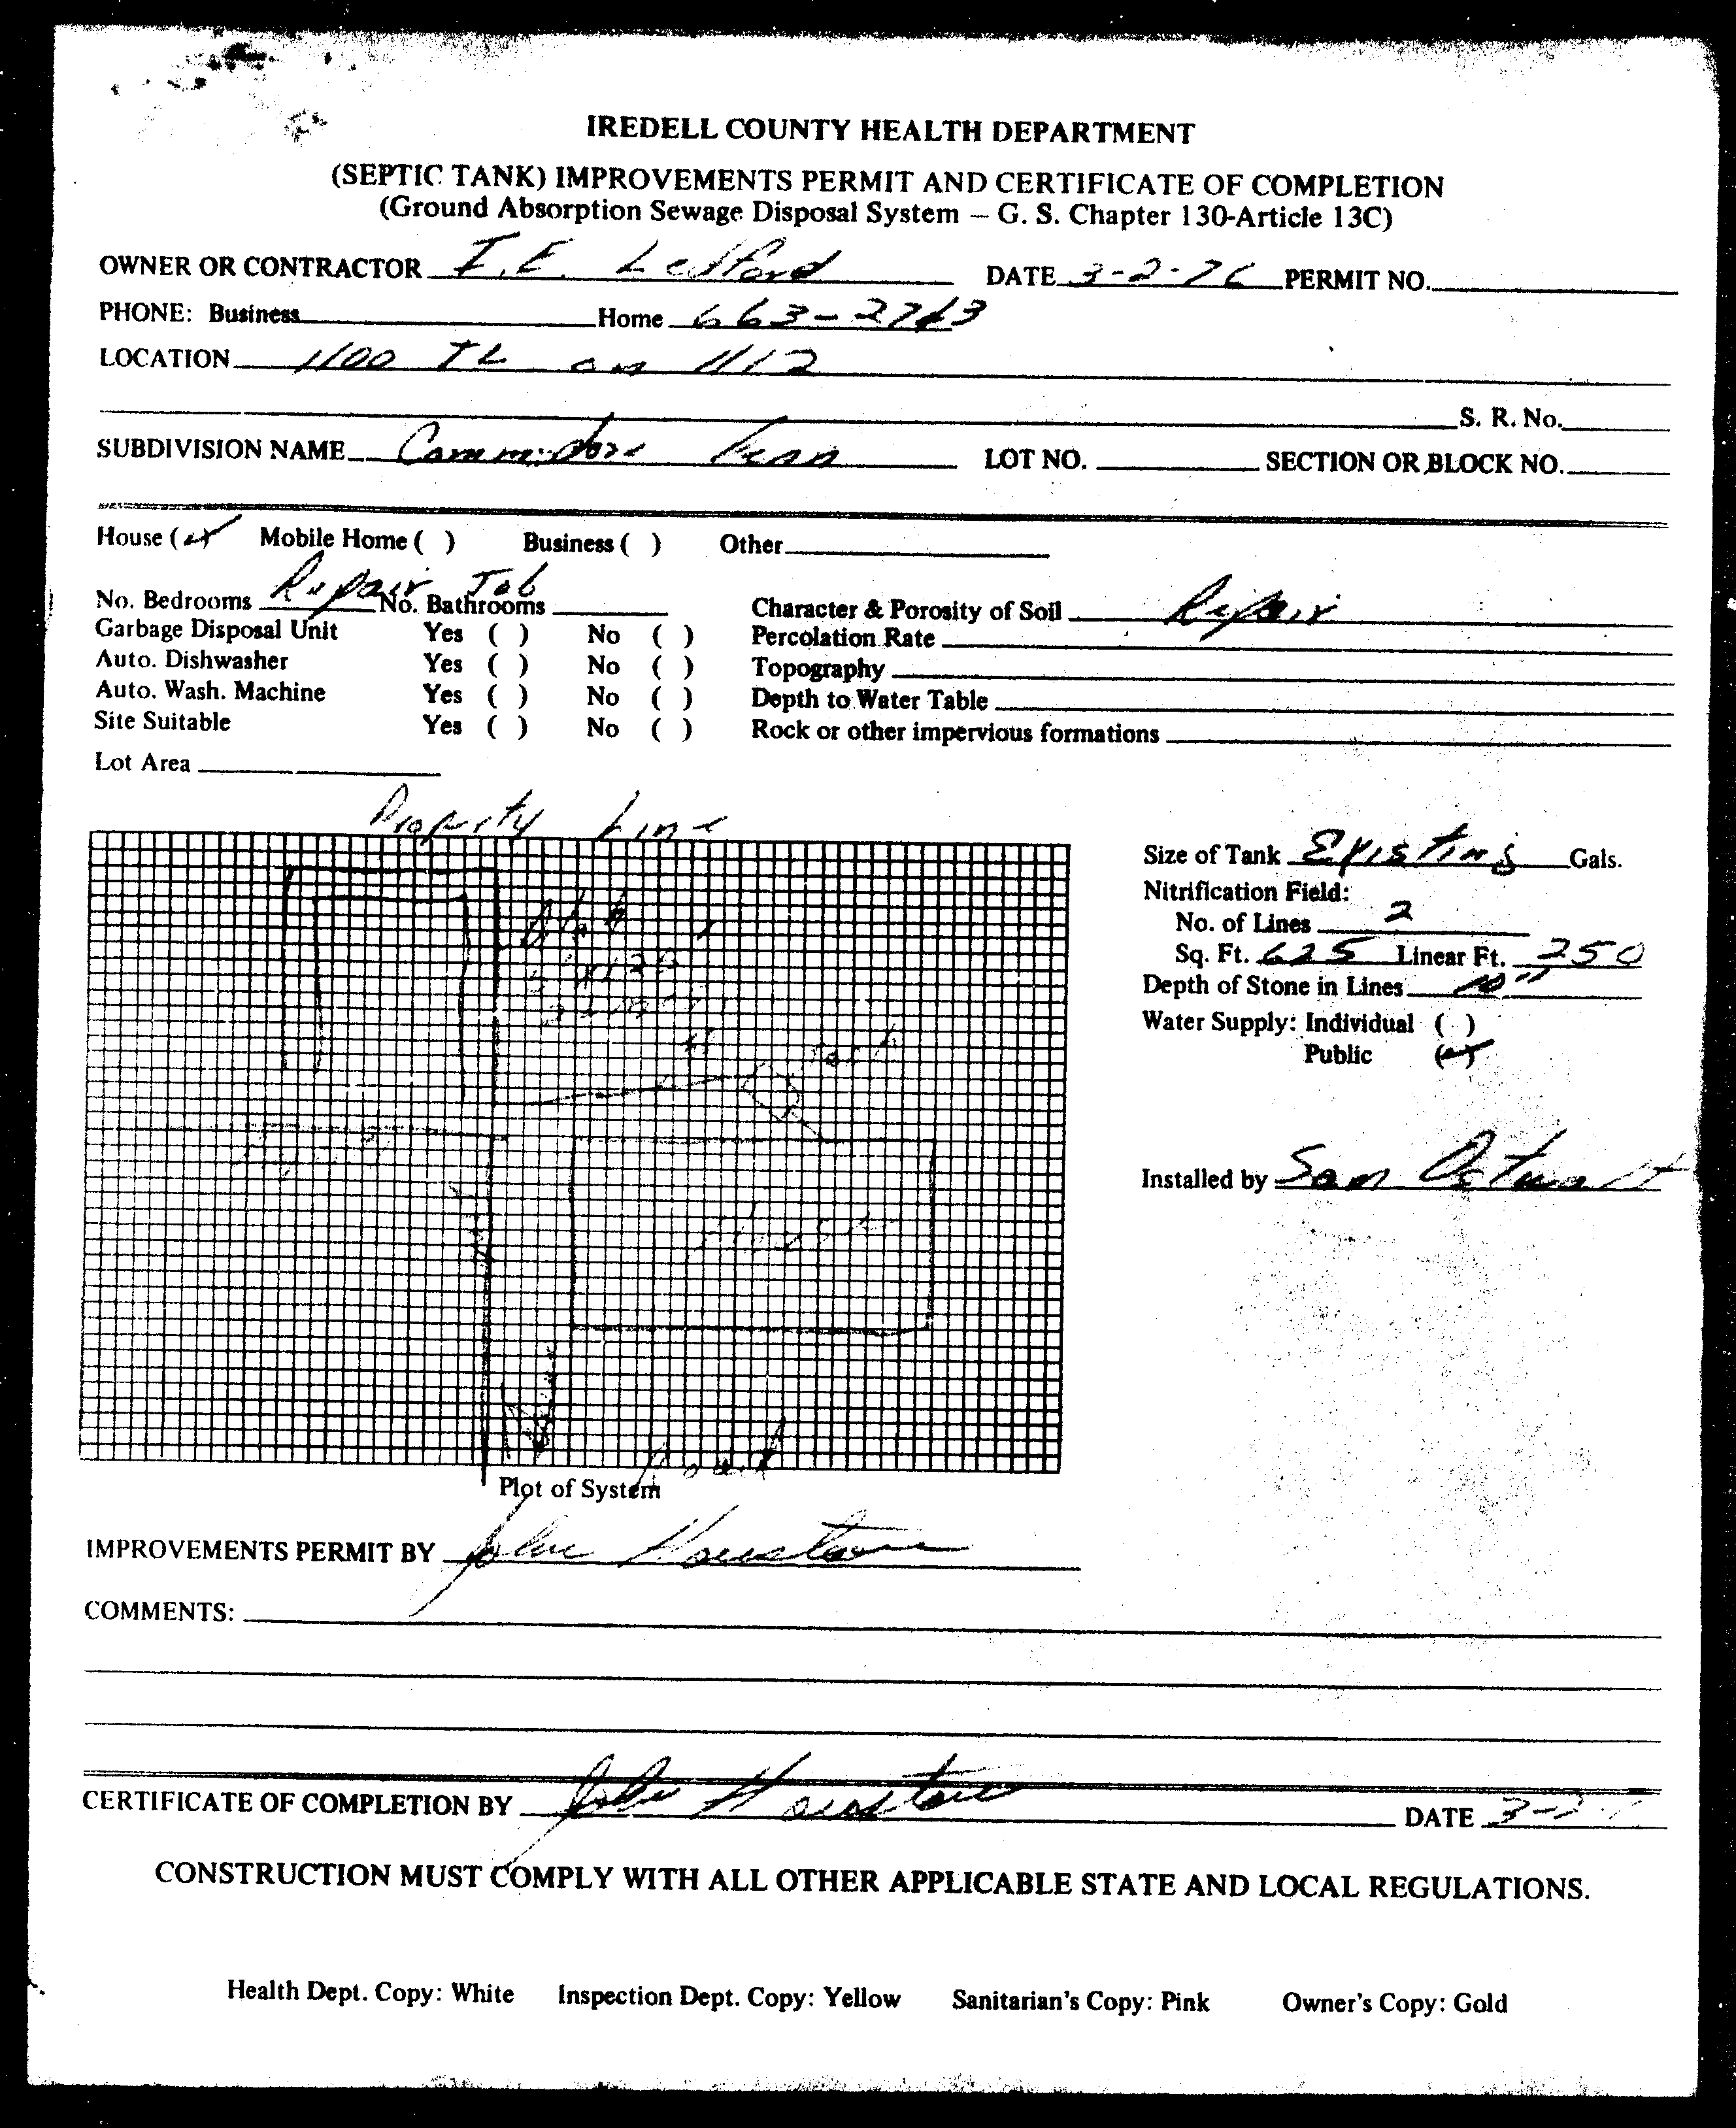 IREDELL COUNTY HEALTH DEPARTMENT
(SEPTIC TANK) IMPROVEMENTS PERMIT AND CERTIFICATE OF COMPLETION
(Ground Absorption Sewage Disposal System – G. S. Chapter 130-Article 13C)
OWNER OR CONTRACTOR I.E. Ledford DATE 3-2-76 PERMIT NO.
PHONE: Business Home 663-
LOCATION 1100 TL on 1112
S. R. No.
SUBDIVISION NAME LOT NO. SECTION OR BLOCK NO.
House (✓) Mobile Home ( ) Business ( ) Other
Repair Job
No. Bedrooms No. Bathrooms Character & Porosity of Soil Repair
Garbage Disposal Unit Yes ( ) No ( ) Percolation Rate
Auto. Dishwasher Yes ( ) No ( ) Topography
Auto. Wash. Machine Yes ( ) No ( ) Depth to Water Table
Site Suitable Yes ( ) No ( ) Rock or other impervious formations
Lot Area
Property Line
Size of Tank Existing Gals.
Nitrification Field:
No. of Lines 2
Sq. Ft. 625 Linear Ft. 250
Depth of Stone in Lines 10"
Water Supply: Individual ( )
Public (✓)
Tank
House
Installed by Sam
Road
Plot of System
IMPROVEMENTS PERMIT BY John Houston
COMMENTS:
CERTIFICATE OF COMPLETION BY John Houston DATE 3-2-
CONSTRUCTION MUST COMPLY WITH ALL OTHER APPLICABLE STATE AND LOCAL REGULATIONS.
Health Dept. Copy: White Inspection Dept. Copy: Yellow Sanitarian's Copy: Pink Owner's Copy: Gold